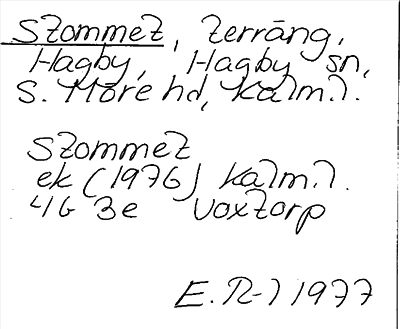 Stommet, terräng,
Hagby, Hagby sn,
S. Möre hd, Kalm.l.
Stommet
ek (1976) Kalm.l.
4G 3e Voxtorp
E.R-l 1977